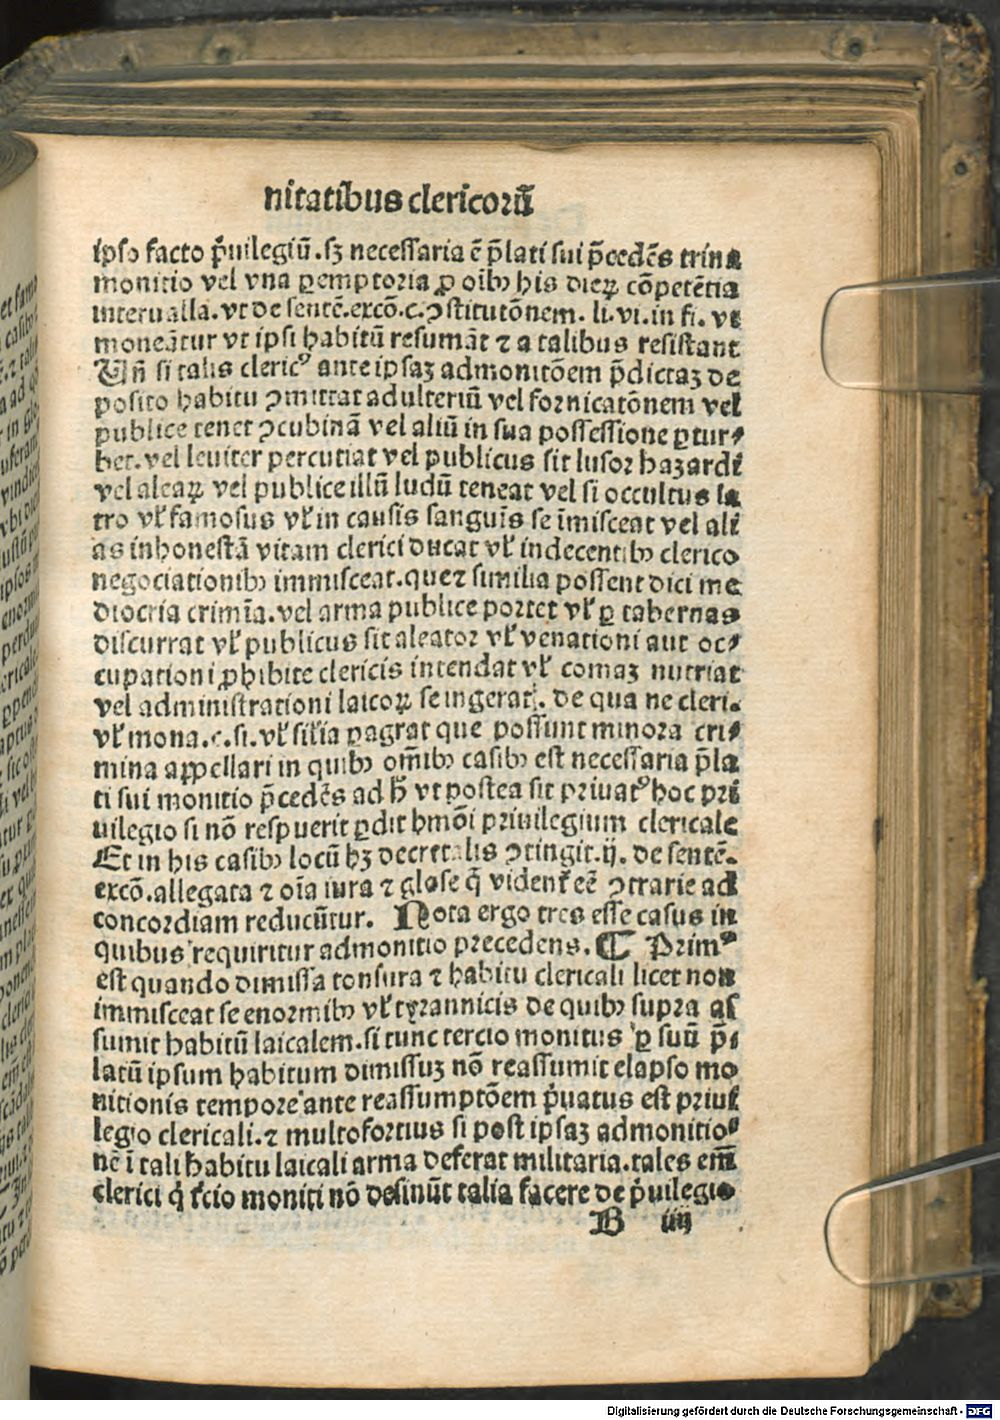 nitatibus clericorū
ipso facto p̄uilegiū.sꝫ necessaria ē p̄lati sui p̄cedēs trina
monitio vel vna ꝑemptoria ꝓ oībꝰ his dieꝝ cōpetētia
interualla.vt de sentē.excō.c.ꝯstitutōnem. li.vi.in fi. vt
moneātur vt ipsi habitū resumāt ⁊ a talibus resistant
Vn̄ si talis clericꝰ ante ipsaꝫ admonitōem p̄dictaꝫ de
posito habitu ꝯmittat adulteriū vel fornicatōnem vel
publice tenet ꝯcubinā vel aliū in sua possessione ꝑtur⸗
bet.vel leuiter percutiat vel publicus sit lusor hazardi
vel aleaꝝ vel publice illū ludū teneat vel si occultus la
tro vl̓ famosus vl̓ in causis sanguīs se īmisceat vel ali
as inhonestā vitam clerici ducat vl̓ indecentibꝰ clerico
negociationibꝰ immisceat.que⁊ similia possent dici me
diocria crimīa.vel arma publice portet vl̓ ꝑ tabernas
discurrat vl̓ publicus sit aleator vl̓ venationi aut oc⸗
cupationi ꝓhibite clericis intendat vl̓ comaꝫ nutriat
vel administrationi laicoꝝ se ingerat. de qua ne cleri.
vl̓ mona.c.si.vl̓ sil̓ia ꝑagrat que possunt minora cri⸗
mina appellari in quibꝰ om̄ibꝰ casibꝰ est necessaria p̄la
ti sui monitio p̄cedēs ad h̄ vt postea sit priuatꝰ hoc pri
uilegio si nō respuerit ꝑdit hmōi priuilegium clericale
Et in his casibꝰ locū hꝫ decretalis ꝯtingit.ij. de sentē.
excō.allegata ⁊ oīa iura ⁊ glose q̄ vident̄ eē ꝯtrarie ad
concordiam reducūtur. Nota ergo tres esse casus in
quibus requiritur admonitio precedens. ¶ Primꝰ
est quando dimissa tonsura ⁊ habitu clericali licet non
immisceat se enormibꝰ vl̓ tyrannicis de quibꝰ supra as
sumit habitū laicalem.si tunc tercio monitus ꝑ suū p̄⸗
latū ipsum habitum dimissuꝫ nō reassumit elapso mo
nitionis tempore ante reassumptōem p̄uatus est priui
legio clericali.⁊ multofortius si post ipsaꝫ admonitio⸗
nē ī tali habitu laicali arma deferat militaria.tales em̄
clerici q̄ t̄cio moniti nō desinūt talia facere de p̄uilegio
B iiij
Digitalisierung gefördert durch die Deutsche Forschungsgemeinschaft - DFG